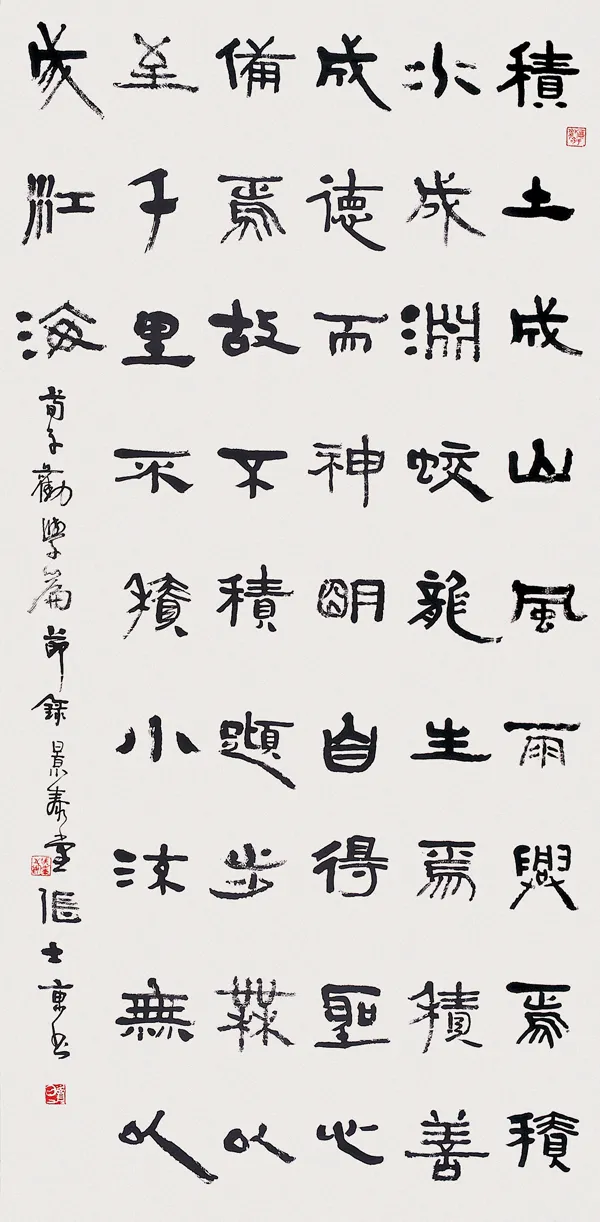 積土成山風雨興焉積
水成淵蛟龍生焉積善
成德而神明自得聖心
備焉故不積蹞步無以
至千里不積小流無以
成江海
荀子勸學篇節錄景泰堂張士東書